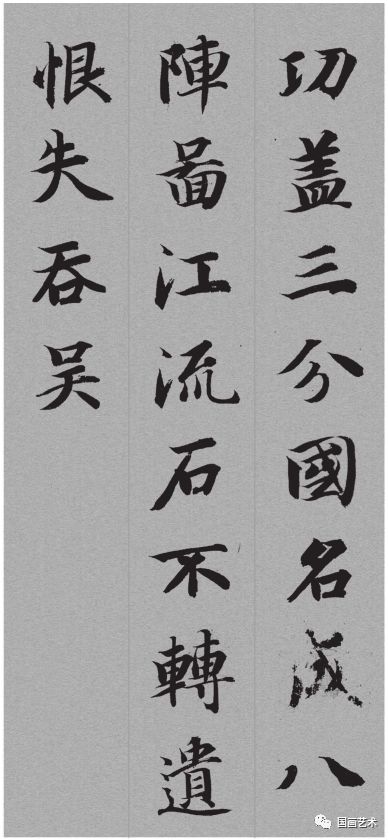 功盖三分國名成八
陣啚江流石不轉遺
恨失吞吴
国画艺术